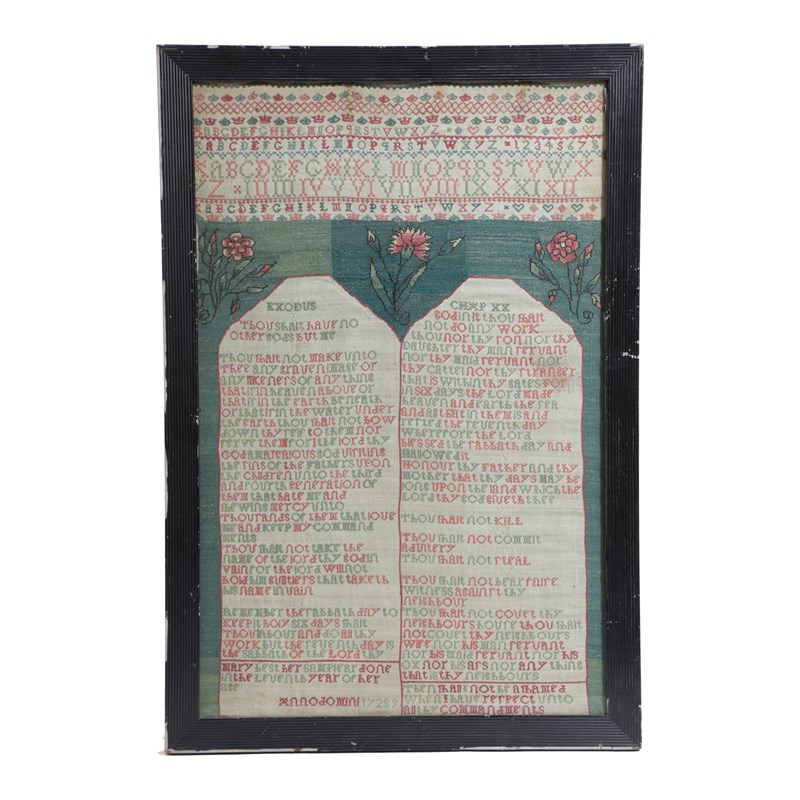 ABCDEFGHIKLMNOPQRSTVWXYZ
ABCDEFGHIKLMNOPQRSTVWXYZ 12345678
ABCDEFGHIKLMNOPQRSTVWX
Z I II III IV V VI VII VIII IX X XI XII
ABCDEFGHIKLMNOPQRSTVWXYZ
EXODUS
Thou shalt have no
other Gods but me
Thou shalt not make unto
Thee any graven image or
any likeness of any thing
that is in heaven above or
that is in the earth beneath
or that is in the water under
the earth thou shalt not bow
down thy self to them nor
serve them for I the lord thy
God am a jealous God visiting
the sins of the Fathers upon
the children unto the third
and fourth generation of
them that hate me and
shewing mercy unto
Thousands of them that love
me and keep my command
ments
Thou shalt not take the
name of the lord thy God in
vain for the lord will not
hold him guiltless that taketh
his name in vain
Remember the sabbath day to
keep it holy six days shalt
Thou labour and do all thy
work but the seventh day is
the sabbath of the Lord thy
Mary best her sampler done
in the eleventh year of her
age
Anno domini 1728 9
CHAP XX
God in it thou shalt
not do any work
thou nor thy son nor thy
Daughter thy man servant
nor thy maid servant nor
thy cattel nor thy stranger
that is within thy gates For
in six days the Lord made
heaven and earth the sea
and all that in them is and
rested the seventh day
wherefore the Lord
blessed the sabbath day and
hallowed it
Honour thy Father and thy
mother that thy days may be
long upon the land which the
Lord thy God giveth thee
Thou shalt not kill
Thou shalt not commit
adultery
Thou shalt not steal
Thou shalt not bear false
witness against thy
neighbour
Thou shalt not covet thy
neighbours house thou shalt
not covet thy neighbours
wife nor his man servant
nor his maid servant nor his
ox nor his ass nor any thing
that is thy neighbours
Then shall I not be ashamed
when I have respect unto
all thy commandments